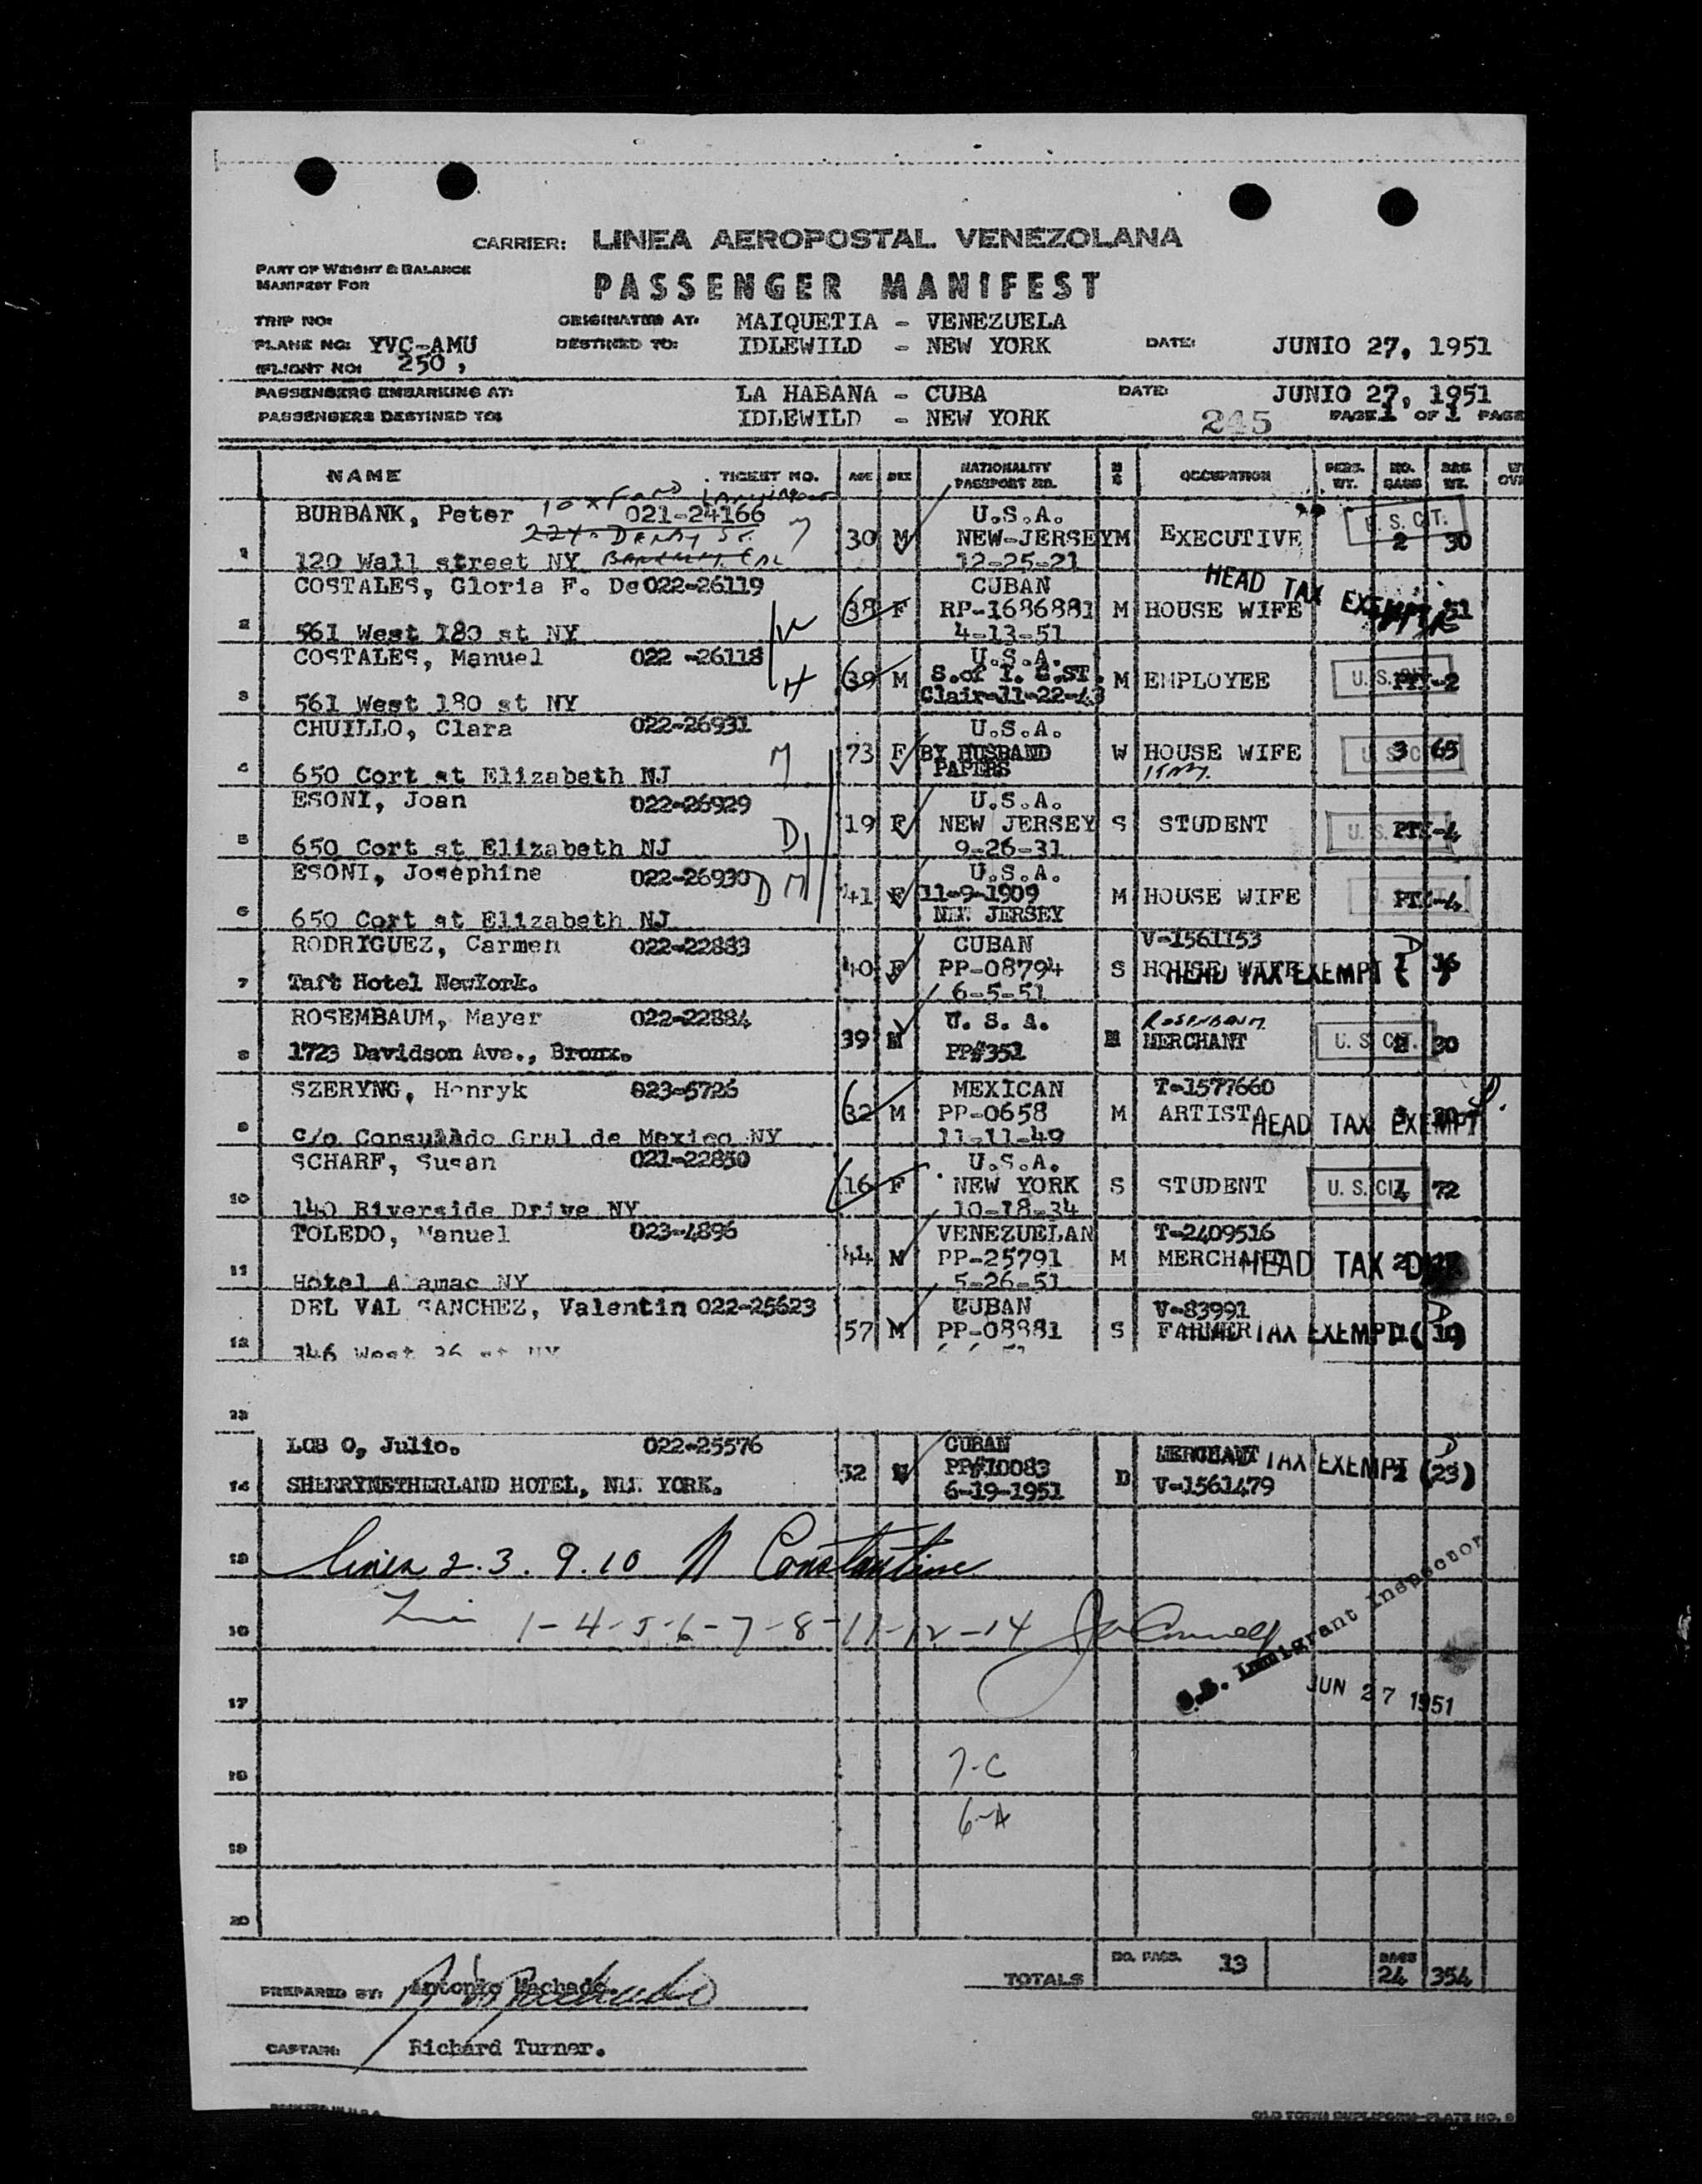 CARRIER: LINEA AEROPOSTAL VENEZOLANA
PART OF WEIGHT & BALANCE
MANIFEST FOR
PASSENGER MANIFEST
TRIP NO: ORIGINATED AT: MAIQUETIA - VENEZUELA
PLANE NO: YVC-AMU DESTINED TO: IDLEWILD - NEW YORK DATE: JUNIO 27, 1951
FLIGHT NO: 250,
PASSENGERS EMBARKING AT: LA HABANA - CUBA DATE: JUNIO 27, 1951
PASSENGERS DESTINED TO: IDLEWILD - NEW YORK 245 PAGE 1 OF 1 PAGE
NAME TICKET NO. AGE SEX NATIONALITY PASSPORT NO. M S OCCUPATION PERS. WT. NO. BAGS BAG WT.
BURBANK, Peter 021-24166 U.S.A. U. S. CIT.
1 30 M NEW-JERSEY M EXECUTIVE 2 30
120 Wall street NY 12-25-21
COSTALES, Gloria F. De 022-26119 CUBAN HEAD TAX EXEMPT
2 38 F RP-1686881 M HOUSE WIFE
561 West 180 st NY 4-13-51
COSTALES, Manuel 022 -26118 U.S.A.
3 39 M S.of I. C.ST. M EMPLOYEE U. S. CIT. PTY-2
561 West 180 st NY Clair-11-22-43
CHUILLO, Clara 022-26931 U.S.A.
4 73 F BY HUSBAND W HOUSE WIFE U. S. CIT. 3 65
650 Cort st Elizabeth NJ PAPERS
ESONI, Joan 022-26929 U.S.A.
5 19 F NEW JERSEY S STUDENT U. S. PTY-4
650 Cort st Elizabeth NJ D 9-26-31
ESONI, Josephine 022-26930 D U.S.A.
6 41 F 11-9-1909 M HOUSE WIFE PTY-4
650 Cort st Elizabeth NJ NEW JERSEY
RODRIGUEZ, Carmen 022-22883 CUBAN V-1561153
7 40 F PP-08794 S HOUSE WIFE HEAD TAX EXEMPT
Taft Hotel NewYork. 6-5-51
ROSEMBAUM, Mayer 022-22884 U. S. A. Rosenbaum
8 39 M M MERCHANT U. S. CIT. 30
1723 Davidson Ave., Bronx. PP#351
SZERYNG, Henryk 023-5726 MEXICAN T-1577660
9 32 M PP-0658 M ARTISTA HEAD TAX EXEMPT
c/o Consulado Gral de Mexico NY 11-11-49
SCHARF, Susan 021-22850 U.S.A.
10 16 F NEW YORK S STUDENT U. S. CIT. 4 72
140 Riverside Drive NY 10-18-34
TOLEDO, Manuel 023-4896 VENEZUELAN T-2409516
11 44 M PP-25791 M MERCHANT HEAD TAX 2
Hotel Alamac NY 5-26-51
DEL VAL SANCHEZ, Valentin 022-25623 CUBAN V-83991
12 57 M PP-08881 S FARMER TAX EXEMPT
346 West 36 st NY
LOB O, Julio. 022-25576 CUBAN MERCHANT TAX EXEMPT (23)
14 M PP#10083 D
SHERRYNETHERLAND HOTEL, NEW YORK. 6-19-1951 V-1561479
15 Lines 2.3.9.10 N Constantine
16 1-4-5-6-7-8-11-12-14
U.S. Immigrant Inspector
17 JUN 27 1951
18 7-C
6-A
19
20
TOTALS NO. PASS. 13 BAGS 24 354
PREPARED BY: Antonio Machado
CAPTAIN: Richard Turner.
PRINTED IN U.S.A.